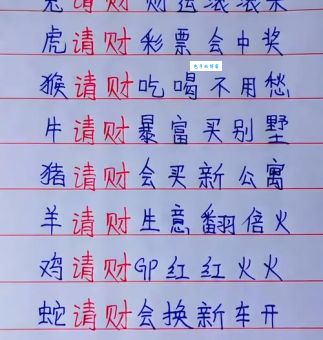 兔请财财源滚滚来
虎请财彩票会中奖
猴请财吃喝不用愁
牛请财暴富买别墅
猪请财会买新公寓
羊请财生意翻倍火
鸡请财GP红红火火
蛇请财会换新车开